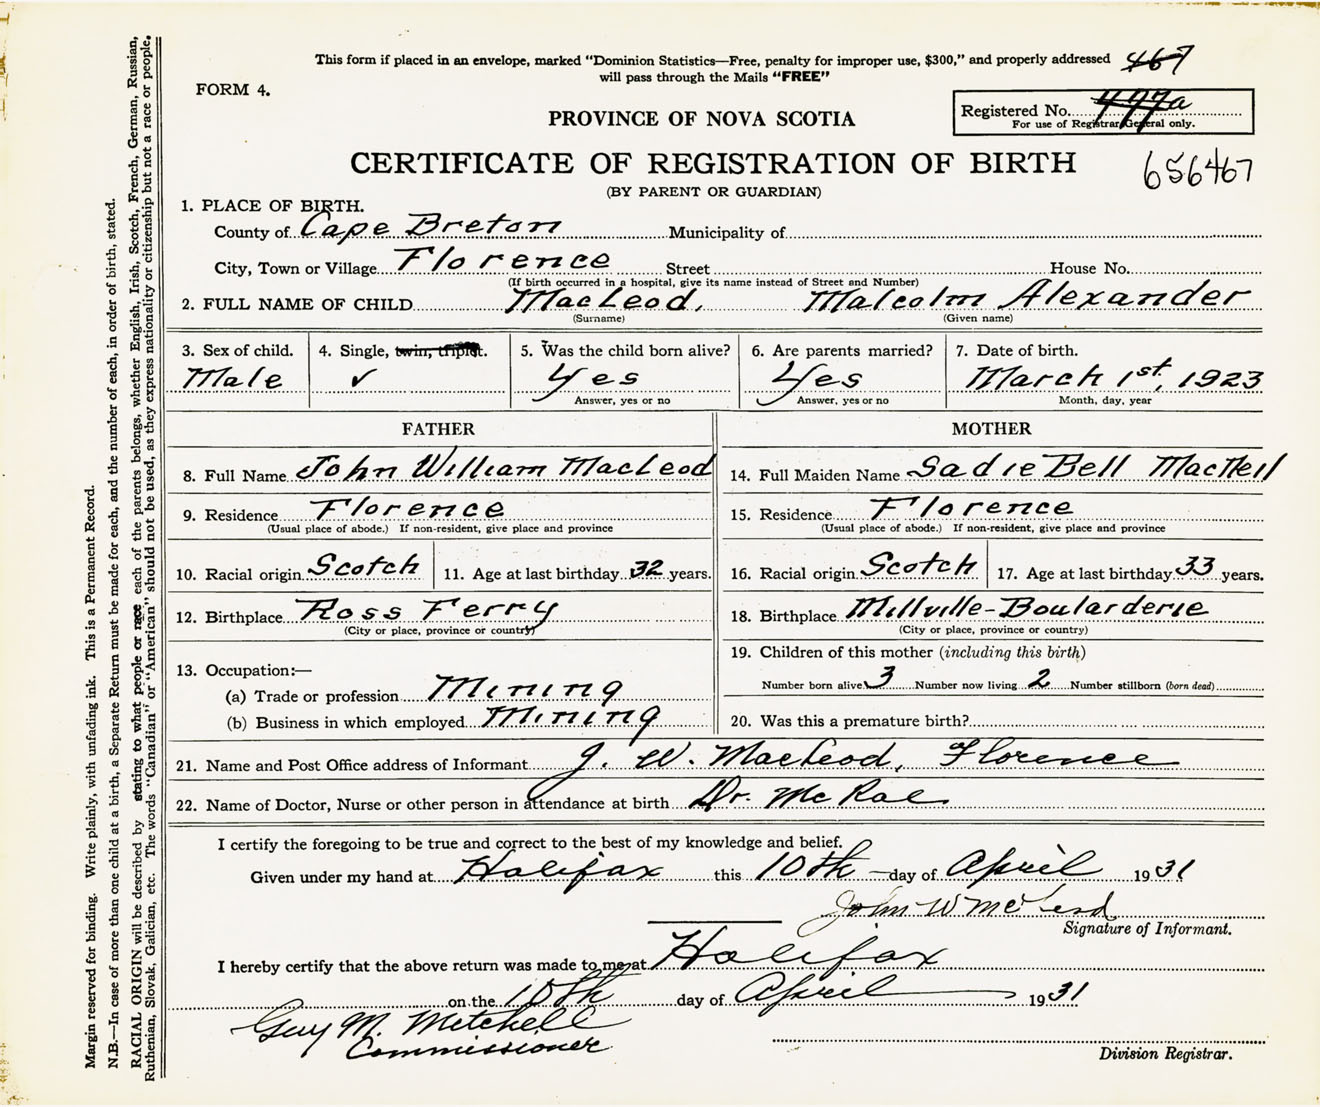 This form if placed in an envelope, marked "Dominion Statistics—Free, penalty for improper use, $300," and properly addressed
will pass through the Mails "FREE"
467
FORM 4.
PROVINCE OF NOVA SCOTIA
Registered No. 477a
For use of Registrar General only.
CERTIFICATE OF REGISTRATION OF BIRTH
656467
(BY PARENT OR GUARDIAN)
1. PLACE OF BIRTH.
County of Cape Breton Municipality of
City, Town or Village Florence Street House No.
(If birth occurred in a hospital, give its name instead of Street and Number)
2. FULL NAME OF CHILD MacLeod, Malcolm Alexander
(Surname) (Given name)
3. Sex of child. 4. Single, twin, triplet. 5. Was the child born alive? 6. Are parents married? 7. Date of birth.
Male ✓ Yes Yes March 1st, 1923
Answer, yes or no Answer, yes or no Month, day, year
FATHER MOTHER
8. Full Name John William MacLeod 14. Full Maiden Name Sadie Bell MacNeil
9. Residence Florence 15. Residence Florence
(Usual place of abode.) If non-resident, give place and province (Usual place of abode.) If non-resident, give place and province
10. Racial origin Scotch 11. Age at last birthday 32 years. 16. Racial origin Scotch 17. Age at last birthday 33 years.
12. Birthplace Ross Ferry 18. Birthplace Millville-Boularderie
(City or place, province or country) (City or place, province or country)
13. Occupation:— 19. Children of this mother (including this birth)
(a) Trade or profession Mining Number born alive 3 Number now living 2 Number stillborn (born dead)
(b) Business in which employed Mining 20. Was this a premature birth?
21. Name and Post Office address of Informant J. W. MacLeod, Florence
22. Name of Doctor, Nurse or other person in attendance at birth Dr. McRae
I certify the foregoing to be true and correct to the best of my knowledge and belief.
Given under my hand at Halifax this 10th day of April 1931
John W McLeod
Signature of Informant.
I hereby certify that the above return was made to me at Halifax
on the 10th day of April 1931
Guy M. Mitchell
Commissioner
Division Registrar.
Margin reserved for binding. Write plainly, with unfading ink. This is a Permanent Record.
N.B.—In case of more than one child at a birth, a Separate Return must be made for each, and the number of each, in order of birth, stated.
RACIAL ORIGIN will be described by stating to what people or race each of the parents belongs, whether English, Irish, Scotch, French, German, Russian,
Ruthenian, Slovak, Galician, etc. The words "Canadian" or "American" should not be used, as they express nationality or citizenship but not a race or people.